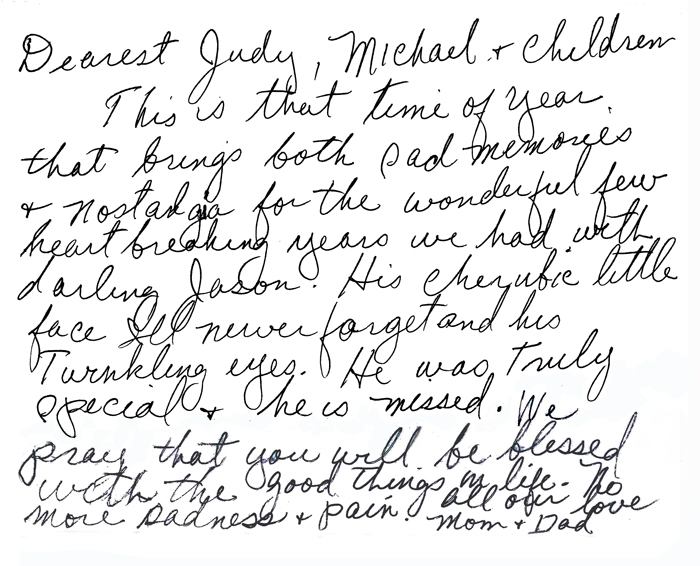 Dearest Judy, Michael + Children
This is that time of year
that brings both sad memories
+ nostalgia for the wonderful few
heartbreaking years we had with
darling Jason. His cherubic little
face I'll never forget and his
Twinkling eyes. He was Truly
special + he is missed. We
pray that you will be blessed
with the good things in life. No
more sadness + pain. all our love
Mom + Dad